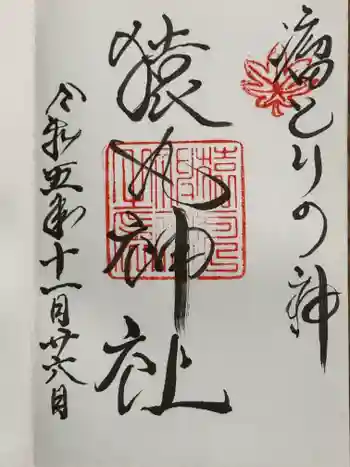 瘤とりの神
猿丸神社
令和五年十一月廿六日